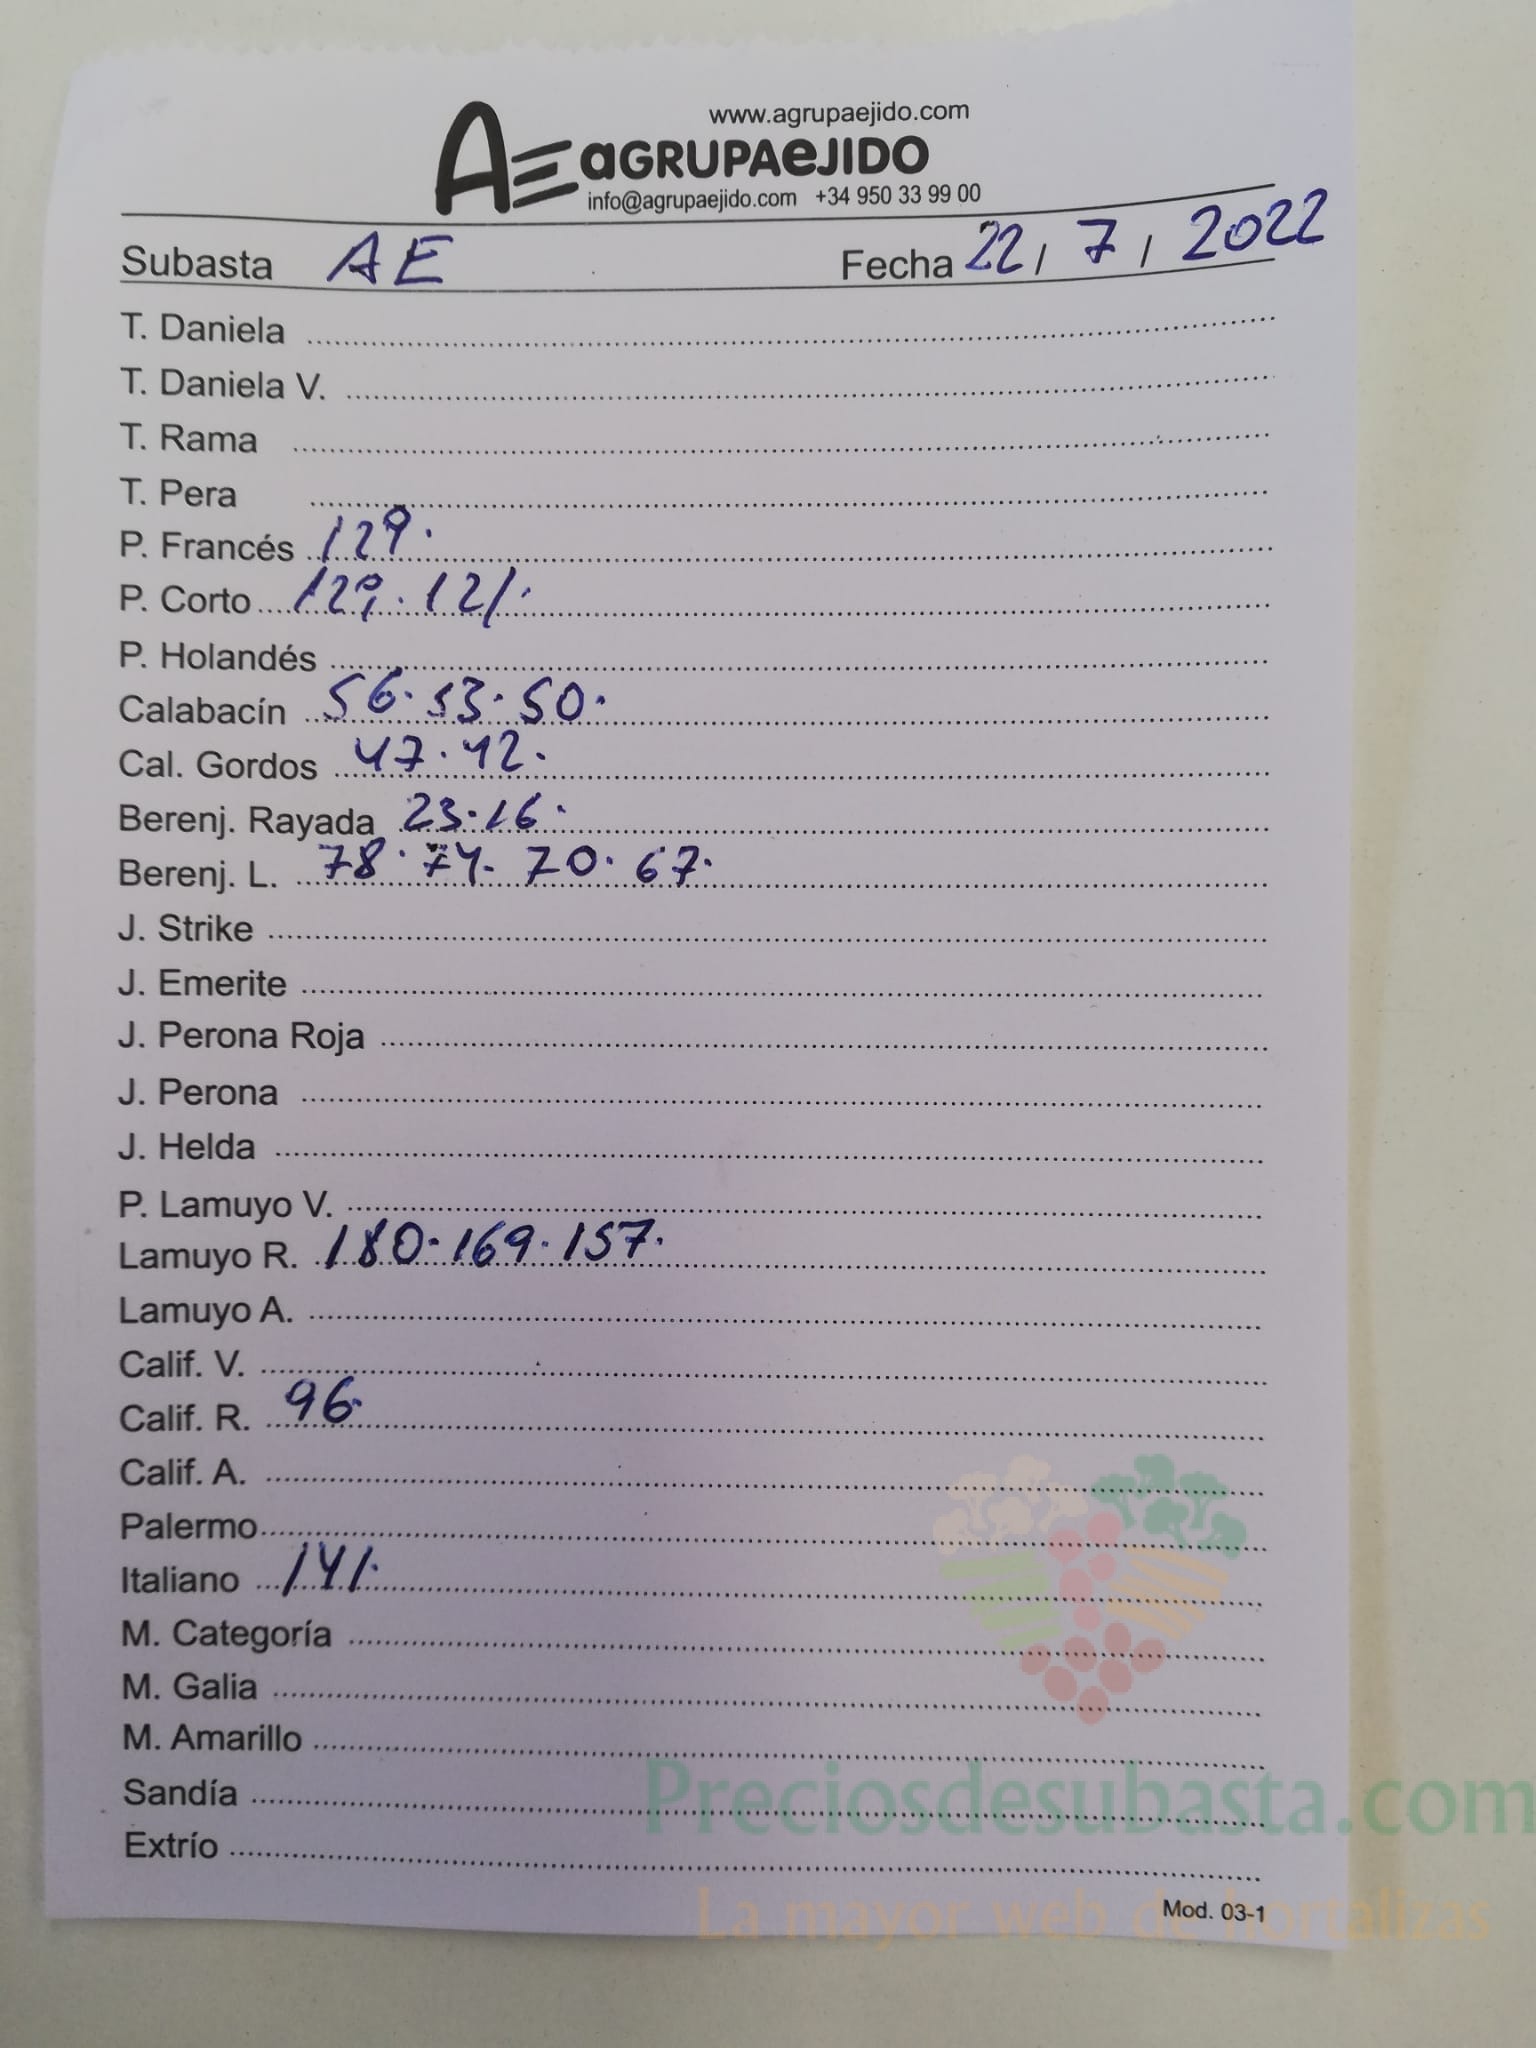 www.agrupaejido.com
AE aGRUPAeJIDO
info@agrupaejido.com +34 950 33 99 00
Subasta AE Fecha 22 / 7 / 2022
T. Daniela
T. Daniela V.
T. Rama
T. Pera
P. Francés 129.
P. Corto 129. 121.
P. Holandés
Calabacín 56. 53. 50.
Cal. Gordos 47. 42.
Berenj. Rayada 23. 16.
Berenj. L. 78. 74. 70. 67.
J. Strike
J. Emerite
J. Perona Roja
J. Perona
J. Helda
P. Lamuyo V.
Lamuyo R. 180. 169. 157.
Lamuyo A.
Calif. V.
Calif. R. 96.
Calif. A.
Palermo
Italiano 141.
M. Categoría
M. Galia
M. Amarillo
Sandía
Extrío
Preciosdesubasta.com
La mayor web de hortalizas
Mod. 03-1